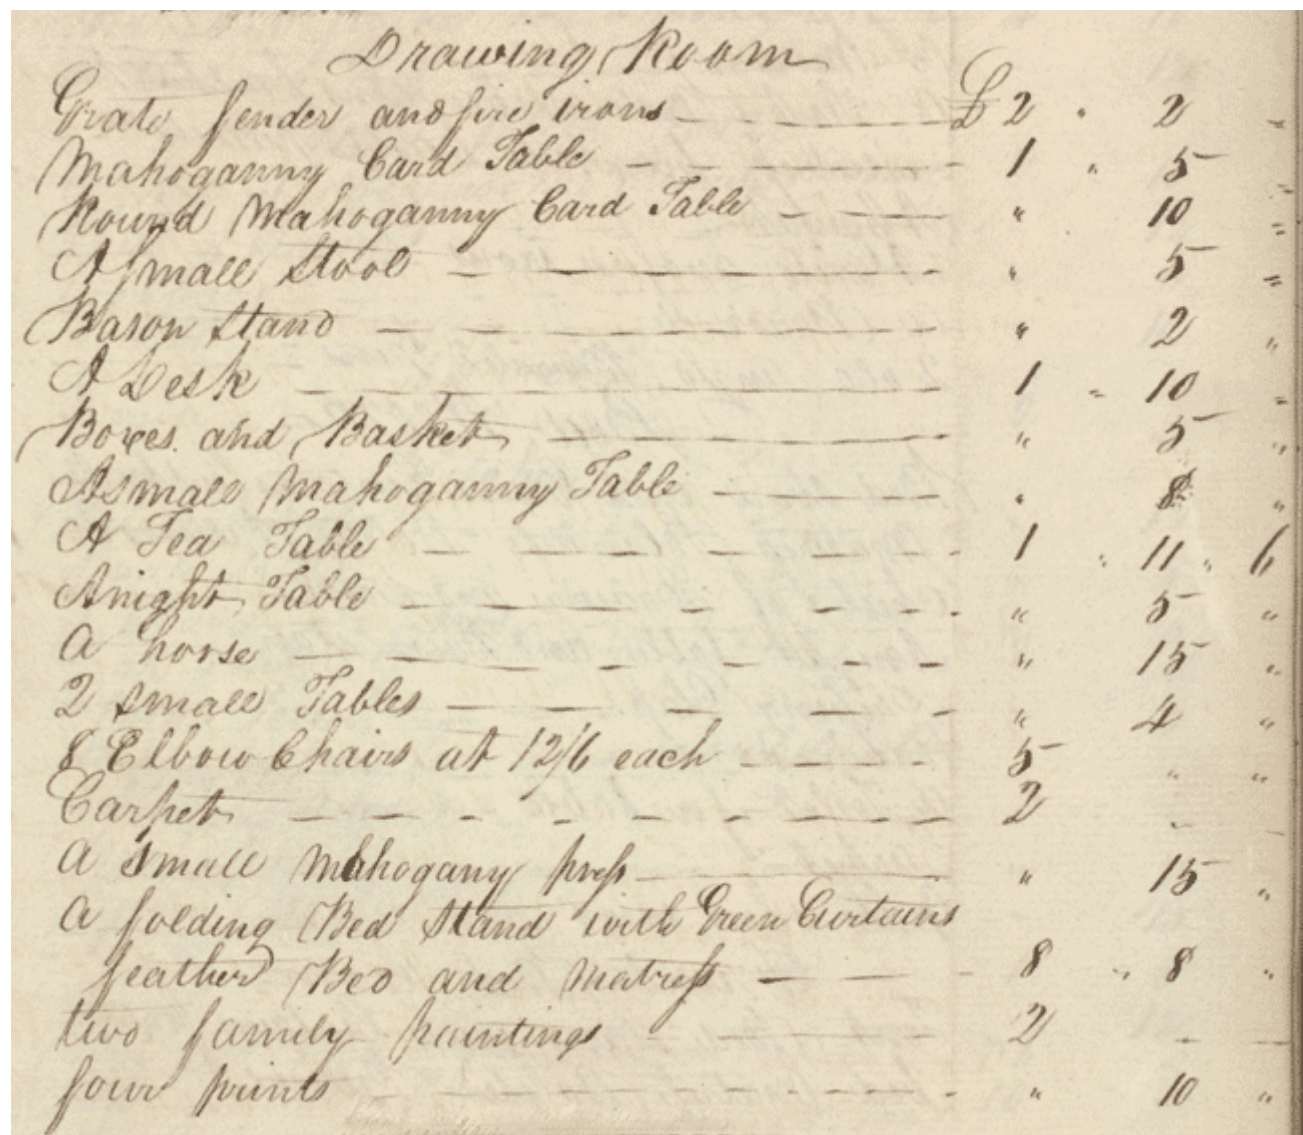 Drawing Room
Grate fender and fire irons £ 2 " 2 "
Mahoganny Card Table 1 " 5 "
Round Mahoganny Card Table " 10 "
A small Stool " 5 "
Bason Stand " 2 "
A Desk 1 " 10 "
Boxes and Basket " 5 "
A small Mahoganny Table " 8 "
A Tea Table 1 " 11 " 6
A night Table " 5 "
A horse " 15 "
2 small Tables " 4 "
8 Elbow Chairs at 12/6 each 5 " "
Carpet 2 - -
A small Mahogany press " 15 "
A folding Bed Stand with Green Curteans
feather Bed and Matress 8 " 8 "
two family paintings 2 - -
four prints " 10 "